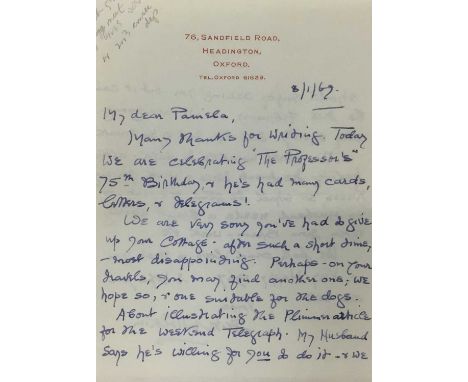 76, SANDFIELD ROAD,
HEADINGTON,
OXFORD.
TEL. OXFORD 61639.
3/1/67.
My dear Pamela,
Many thanks for writing Today
we are celebrating "The Professor's"
75th Birthday, & he's had many cards,
letters, & telegrams!
We are very sorry you've had to give
up your Cottage - after such a short time,
- most disappointing. Perhaps - on your
travels, you may find another one; we
hope so, & one suitable for the dogs.
About illustrating the Plimmer article
for the Weekend Telegraph. My Husband
says he's willing for you to do it - & we